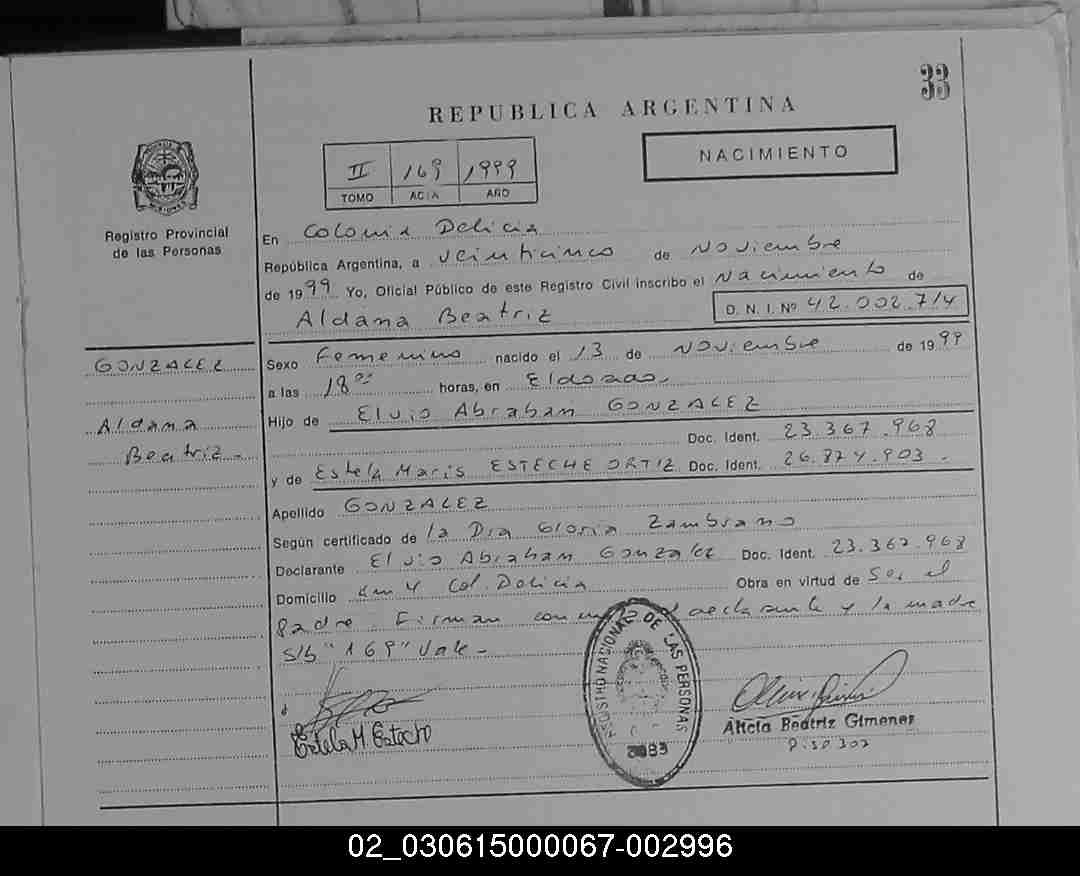 33
REPUBLICA ARGENTINA
NACIMIENTO
II 169 1999
TOMO ACTA AÑO
Registro Provincial
de las Personas
En Colonia Delicia
República Argentina, a veinticinco de Noviembre
de 1999 Yo, Oficial Público de este Registro Civil inscribo el Nacimiento de
Aldana Beatriz D. N. I. Nº 42.002.714
GONZALEZ
Aldana
Beatriz -
Sexo Femenino nacido el 13 de Noviembre de 1999
a las 18 00 horas, en Eldorado.
Hijo de Elvio Abraham GONZALEZ
Doc. Ident. 23.367.968
y de Estela Maris ESTECHE ORTIZ Doc. Ident. 26.874.903.
Apellido GONZALEZ
Según certificado de la Dra Gloria Zambrano
Declarante Elvio Abraham Gonzalez Doc. Ident. 23.367.968
Domicilio Km 4 Col. Delicia Obra en virtud de Ser el
padre. Firman conmigo el declarante y la madre
S/b "169" Vale -
Estela M Estech
REGISTRO NACIONAL DE LAS PERSONAS
Alicia Beatriz Gimenez
02_030615000067-002996